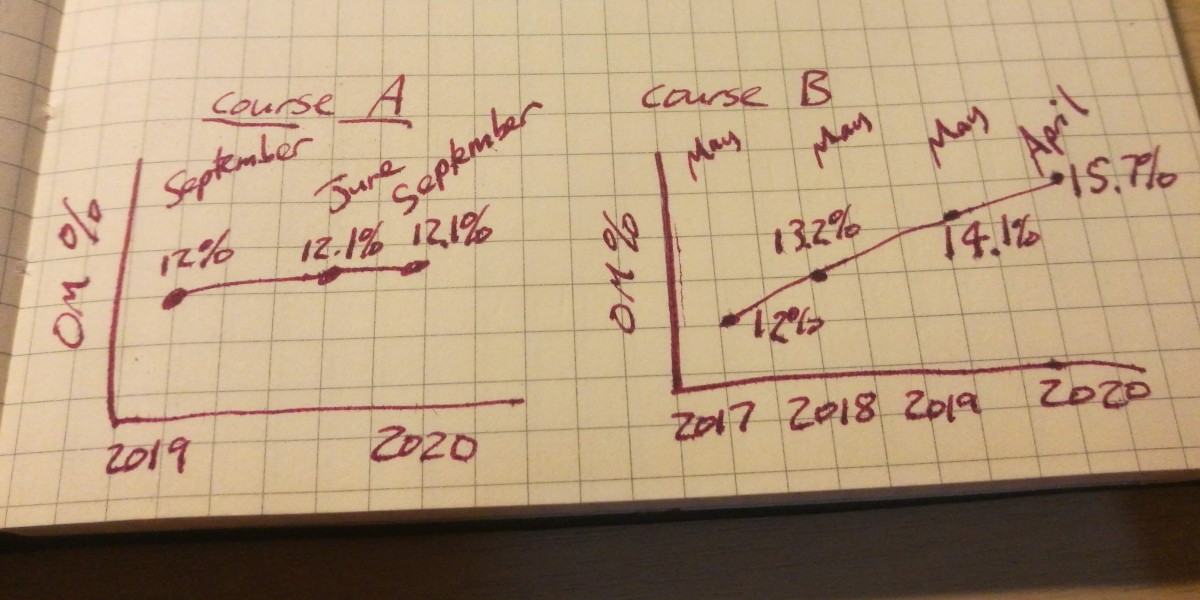 Course A
September
June
September
12%
12.1%
12.1%
OM %
2019
2020
Course B
May
May
May
April
12%
13.2%
14.1%
15.7%
OM %
2017
2018
2019
2020